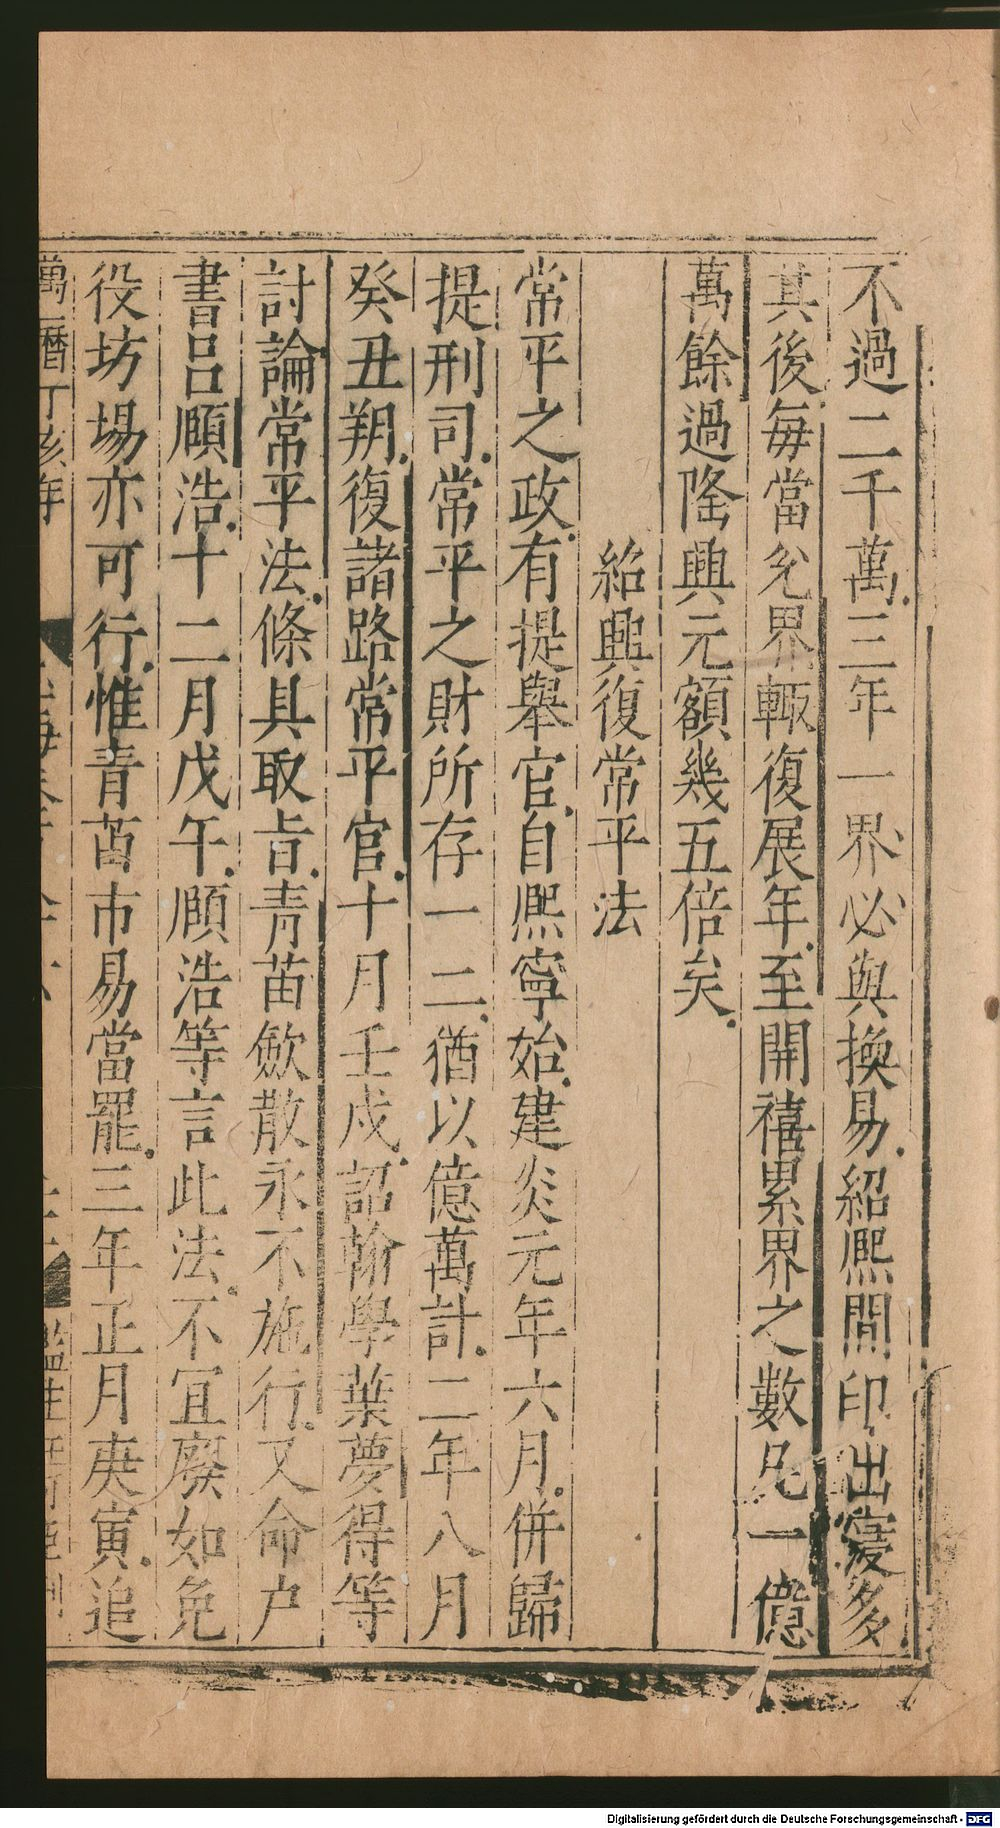 不過二千萬三年一界必與換易紹熙間印出寖多
其後每當兊界輙復展年至開禧累界之數凡一億
萬餘過隆興元額幾五倍矣
紹興復常平法
常平之政有提舉官自熈寧始建炎元年六月併歸
提刑司常平之財所存一二猶以億萬計二年八月
癸丑朔復諸路常平官十月壬戌詔翰學葉夢得等
討論常平法條具取㫖青苗斂散永不施行又命户
書吕頤浩十二月戊午頤浩等言此法不宜廢如免
役坊場亦可行惟青苗市易當罷三年正月庚寅追
萬曆丁亥年
監生
Digitalisierung gefördert durch die Deutsche Forschungsgemeinschaft - DFG